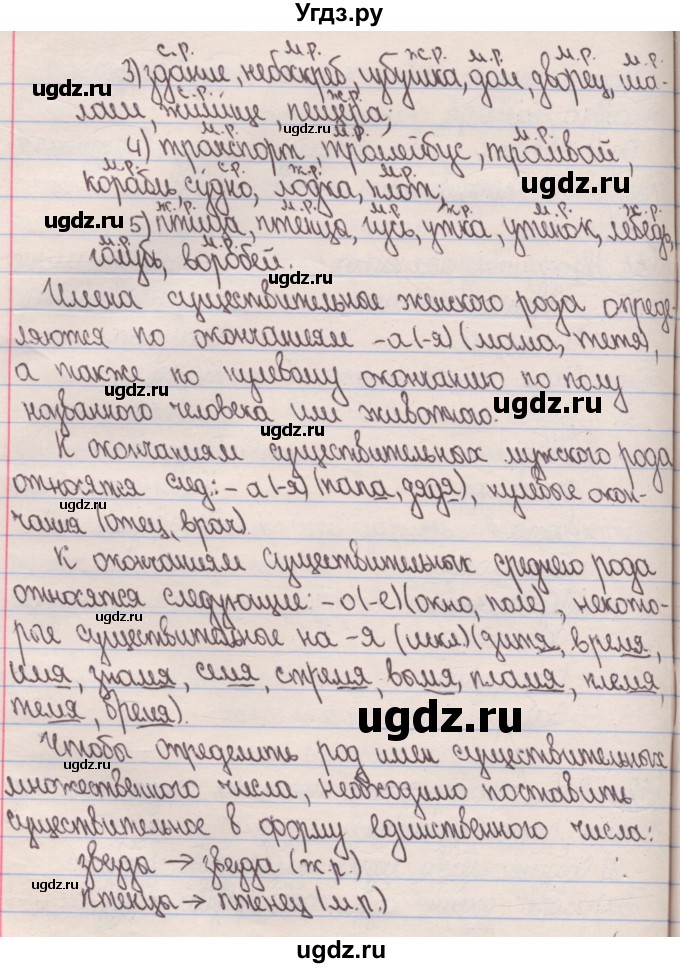 Угдз.ру
с.р. м.р. ж.р. м.р. м.р. м.р.
3) здание, небоскреб, избушка, дом, дворец, ша-
с.р. ж.р.
лаш, жилище, пещера;
м.р. м.р. м.р.
4) транспорт, тролейбус, трамвай,
м.р. с.р. ж.р. м.р.
корабль, судно, лодка, плот;
ж.р. м.р. м.р. ж.р. м.р. ж.р.
5) птица, птенцы, гусь, утка, утёнок, лебедь,
м.р. м.р.
голубь, воробей.
Имена существительное женского рода опреде-
ляются по окончаниям -а(-я) (мама, тетя),
а также по нулевому окончанию по полу
названного человека или животного.
К окончаниям существительных мужского рода
относятся след.: -а(-я) (папа, дядя), нулевые окон-
чания (отец, врач).
К окончаниям существительных среднего рода
относятся следующие: -о(-е) (окно, поле), некото-
рые существительное на -я (искл.) (дитя, время,
имя, знамя, семя, стремя, вымя, пламя, племя,
темя, бремя).
Чтобы определить род имен существительных
множественного числа, необходимо поставить
существительное в форму единственного числа:
звезды → звезда (ж.р.)
птенцы → птенец (м.р.)
ugdz.ru
ugdz.ru
ugdz.ru
ugdz.ru
ugdz.ru
ugdz.ru
ugdz.ru
ugdz.ru
ugdz.ru
ugdz.ru
ugdz.ru
ugdz.ru
ugdz.ru
ugdz.ru